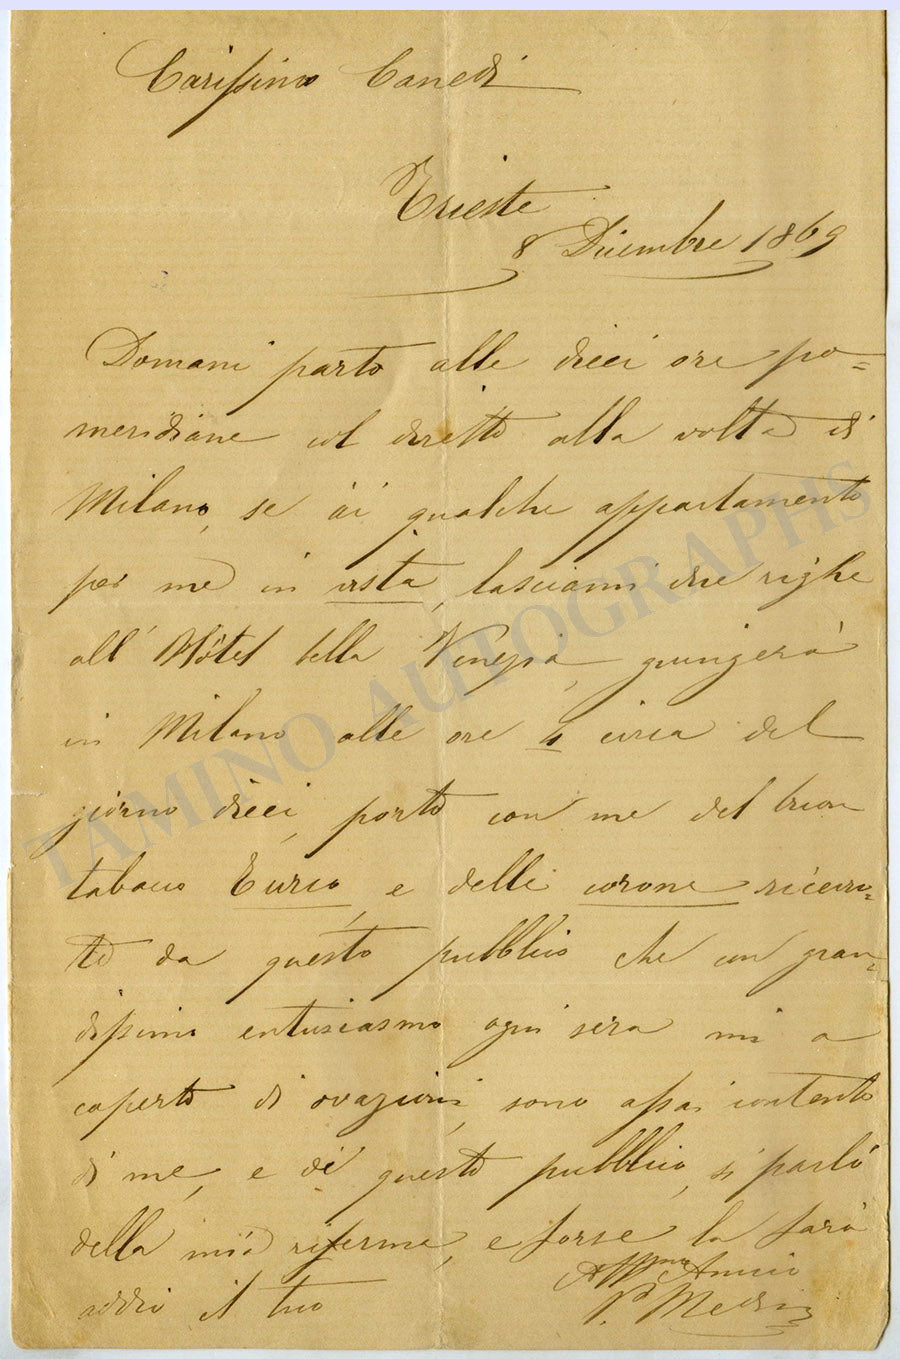 Carissimo Canedi
Trieste
8 Dicembre 1869
Domani parto alle dieci ore po=
meridiane col diretto alla volta di
Milano, se ài qualche appartamento
per me in vista, lasciami due righe
all' Hôtel della Venezia, giungerò
in Milano alle ore 4 circa del
giorno dieci, porto con me del buon
tabaco Turco, e delle corone ricevu=
te da questo pubblico che con gran=
dissimo entusiasmo ogni sera mi a
coperto di ovazioni, sono assai contento
di me, e di questo pubblico, si parlò
della mia riferma, e forse la farò
addio il tuo
Affmo Amico
P. Medini
TAMINO AUTOGRAPHS